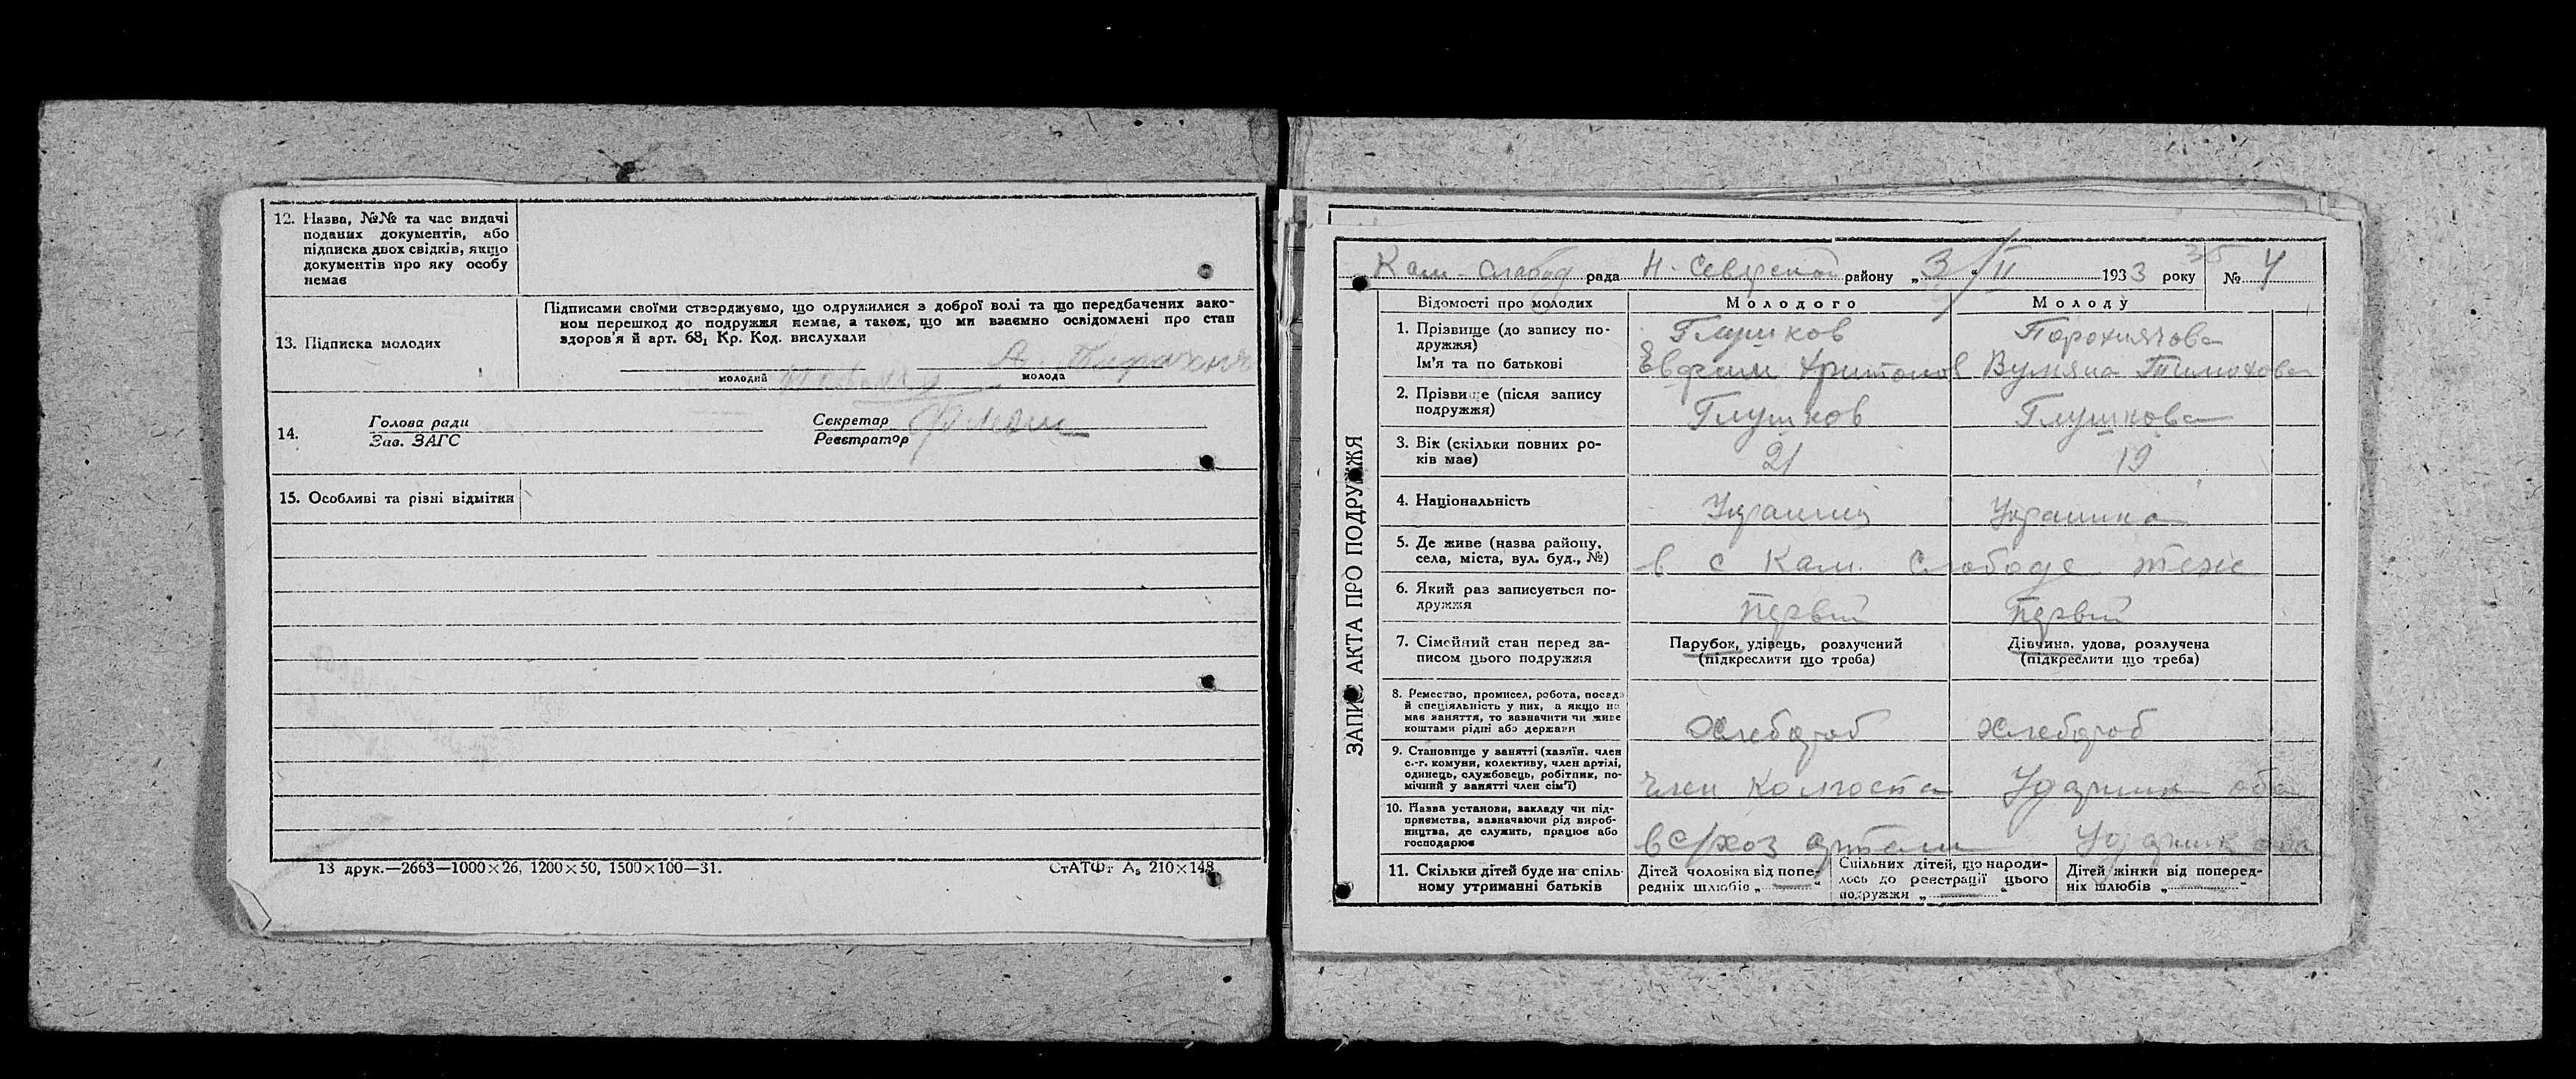 12. Назва, №№ та час видачі
поданих документів, або
підписка двох свідків, якщо
документів про яку особу
немає
13. Підписка молодих
Підписами своїми стверджуємо, що одружилися з доброї волі та що передбачених зако-
ном перешкод до подружжя немає, а також, що ми взаємно освідомлені про стан
здоров'я й арт. 68₁ Кр. Код. вислухали
молодий
молода
14.
Голова ради
Зав. ЗАГС
Секретар
Реєстратор
15. Особливі та різні відмітки
13 друк.—2663—1000×26, 1200×50, 1500×100—31.
СтАТФт А₅ 210×148
ЗАПИС АКТА ПРО ПОДРУЖЖЯ
Кам-слабод рада Н. Северской району „3/II 1933 року № 4
35
Відомості про молодих
Молодого
Молоду
1. Прізвище (до запису по-
дружжя)
Ім'я та по батькові
Глушков
Евфим
Тимохова
2. Прізвище (після запису
подружжя)
Глушков
Глушкова
3. Вік (скільки повних ро-
ків має)
21
19
4. Національність
Украинец
Украинка
5. Де живе (назва району,
села, міста, вул. буд., №)
в с Кам. Слободе теже
6. Який раз записується по-
дружжя
первий
первий
7. Сімейний стан перед за-
писом цього подружжя
Парубок, удівець, розлучений
(підкреслити що треба)
Дівчина, удова, розлучена
(підкреслити що треба)
8. Ремество, промисел, робота, посада
й спеціяльність у них, а якщо не
має заняття, то зазначити чи живе
коштами рідні або держави
Хлебороб
Хлебороб
9. Становище у занятті (хазяїн, член
с.-г. комуни, колективу, член артілі,
одинець, службовець, робітник, по-
мічний у занятті член сім'ї)
член колгоспа
10. Назва установи, закладу чи під-
приємства, зазначаючи рід вироб-
ництва, де служить, працює або
господарює
в с/хоз артели
11. Скільки дітей буде на спіль-
ному утриманні батьків
Дітей чоловіка від попе-
редніх шлюбів „ “
Спільних дітей, що народи-
лось до реєстрації цього
подружжя „ “
Дітей жінки від поперед-
ніх шлюбів „ “